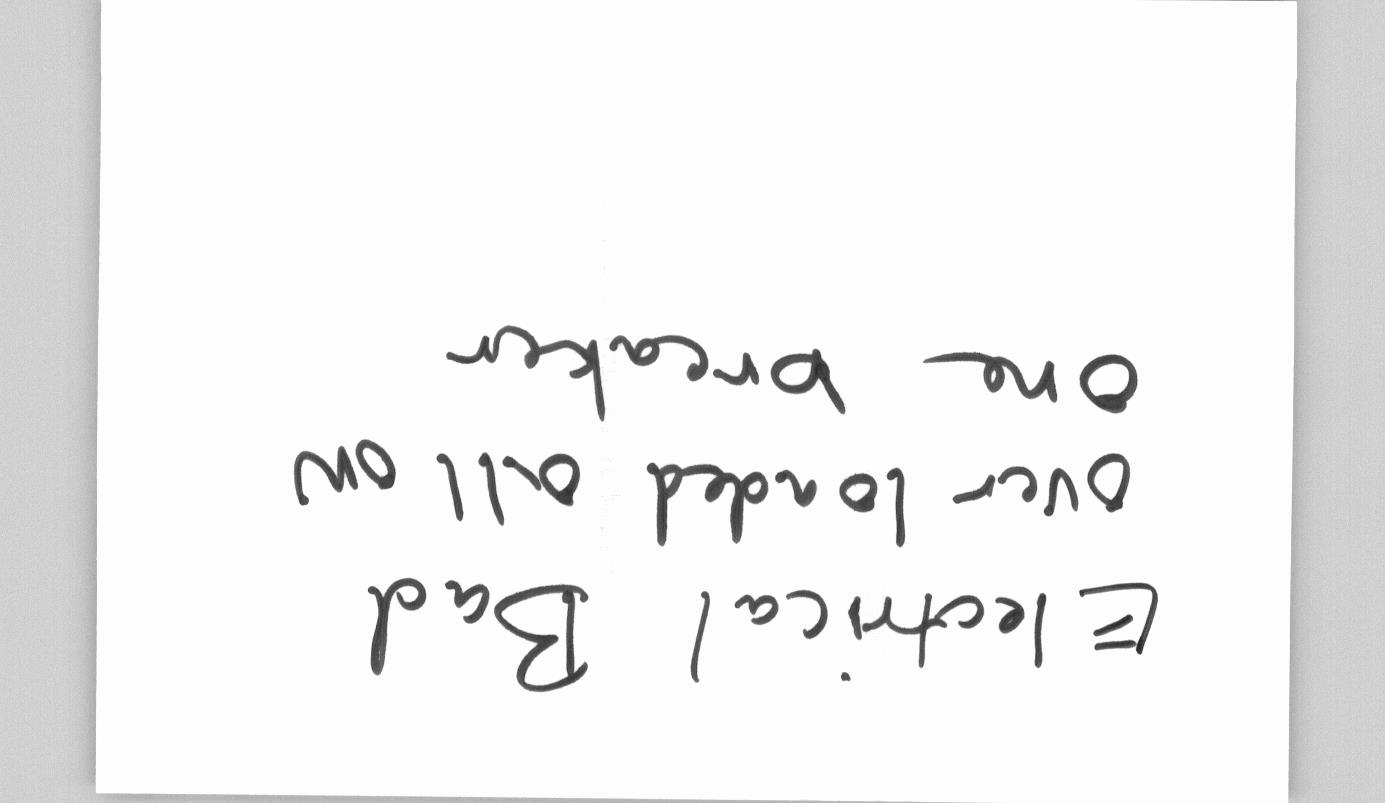 Electrical Bad
over loaded all on
one breaker